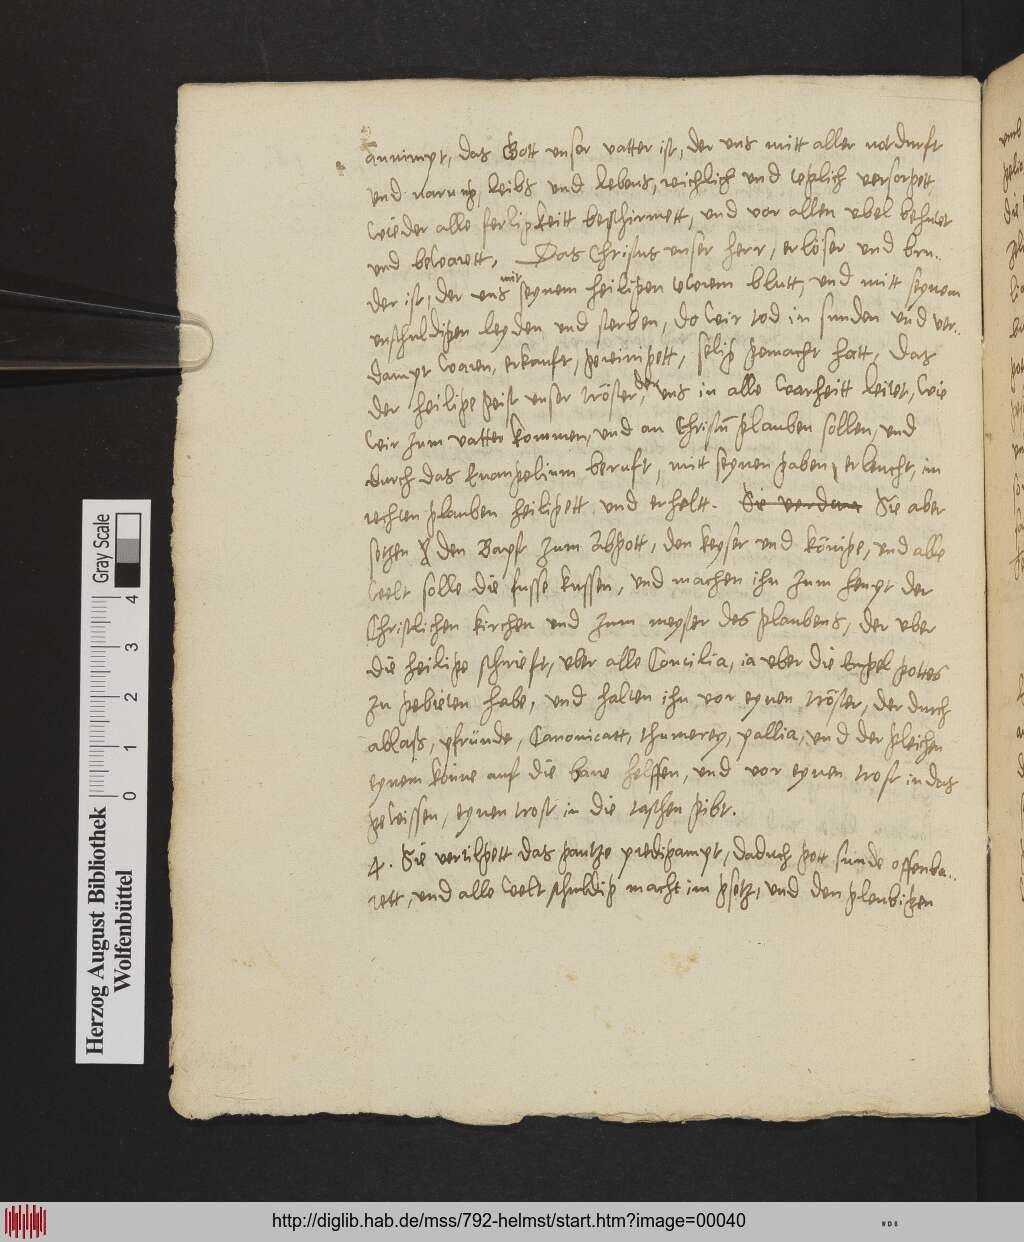 annimpt, das Gott unser vatter ist, der uns mitt aller notdurfft
und narung, leibs und lebens, reichlich und teglich versorgett
wieder alle ferligkeitt beschirmett, und vor allen ubel behutet
und bewarett. Das Christus unser herr, erlöser und bru..
der ist, der uns mit seynem heiligen tewrem blutt, und mitt seynem
unschuldigen leyden und sterben, do wir tod in sunden und ver..
dampt waren, erkaufft, gereinigett, selig gemacht hatt, Das
der heilige geist unser tröster, der uns in alle warheitt leitet, wie
wir zum vatter kommen, und an Christū glauben sollen, und
durch das Euangelium beruft, mitt seynen gaben erleucht, im
rechten glauben heiligett und erheltt. Sie werden Sie aber
setzen den Bapst zum Abgott, den keyser und könige, und alle
welt solle die fusse kussen, und machen ihn zum heupt der
Christlichen kirchen und zum meyster des glaubens, der uber
die heilige schrieft, uber alle Concilia, ia uber die Engel gottes
zu gebieten habe, und halten ihn vor eynen tröster, der durch
ablaß, pfründe, Canonicatt, thumerey, pallia, und der gleichen
eynem könne auf die bane helffen, und vor eynen trost in das
gewissen, eynen trost in die taschen gibt.
4. Sie vertilgett das gantze predigampt, daduch gott sunde offenba..
rett, und alle welt schuldig macht im gsetz, und den gleubigen
Herzog August Bibliothek
Wolfenbüttel
Gray Scale
0 1 2 3 4
http://diglib.hab.de/mss/792-helmst/start.htm?image=00040